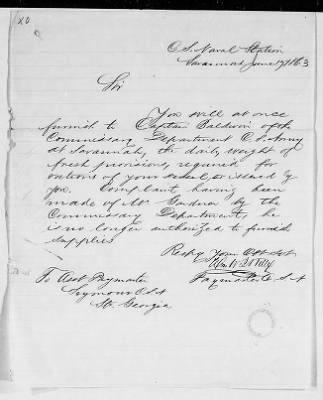 C. S. Naval Station
Savannah June 17 1863
Sir
You will at once
furnish to Captain Baldwin of the
Commissary Department C. S. Army
at Savannah, the daily weight of
fresh provisions, required for
rations of your vessel, to issued by
you. Complaint having been
made of Mr Gardner by the
Commissary Department, he
is no longer authorized to furnish
supplies
Resp'y Your Obt Svt
Paymaster C S N
To Asst Paymaster
Seymour C S N
Str. Georgia